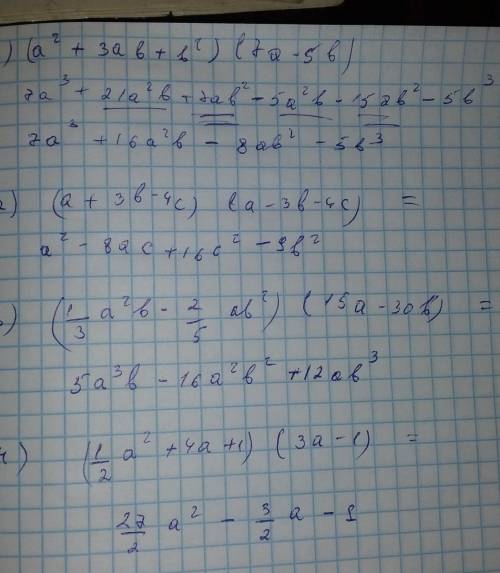 ) (a² + 3ab + b²) (7a - 5b)
7a³ + 21a²b + 7ab² - 5a²b - 15ab² - 5b³
7a³ + 16a²b - 8ab² - 5b³
) (a + 3b - 4c) (a - 3b - 4c) =
a² - 8ac + 16c² - 9b²
) (1/3 a²b - 2/5 ab²) (15a - 30b) =
5a³b - 16a²b² + 12ab³
) (1/2 a² + 4a + 1) (3a - 1) =
27/2 a² - 3/2 a - 1